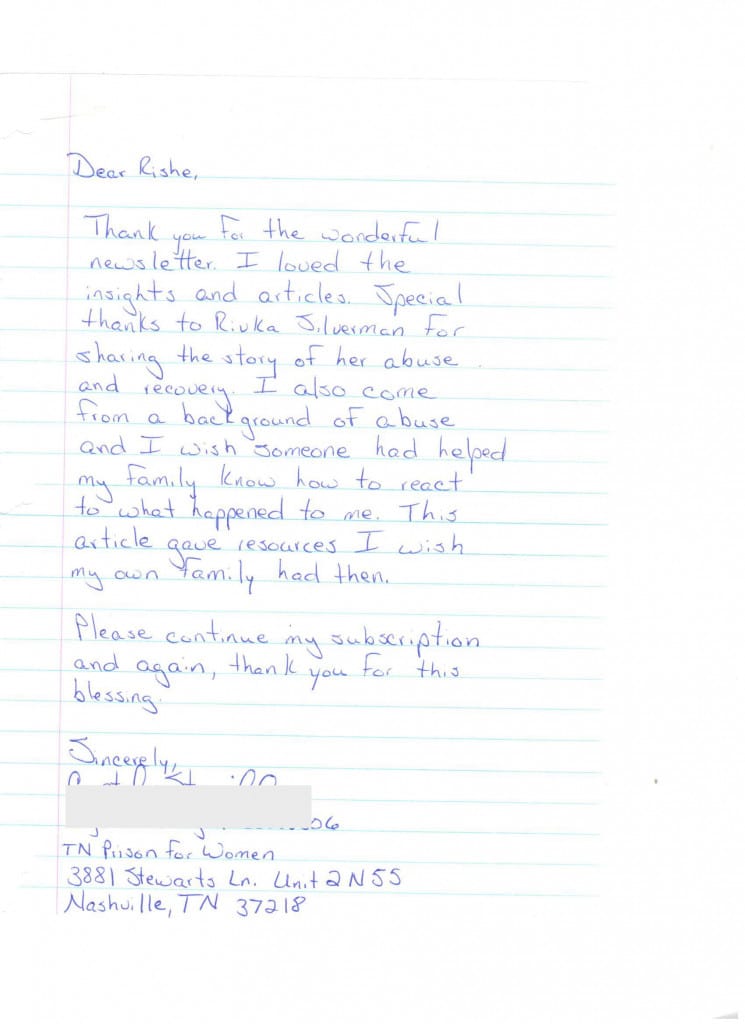 Dear Rishe,
Thank you for the wonderful
newsletter. I loved the
insights and articles. Special
thanks to Rivka Silverman for
sharing the story of her abuse
and recovery. I also come
from a background of abuse
and I wish someone had helped
my family know how to react
to what happened to me. This
article gave resources I wish
my own family had then.
Please continue my subscription
and again, thank you for this
blessing.
Sincerely,
TN Prison for Women
3881 Stewarts Ln. Unit 2 N55
Nashville, TN 37218